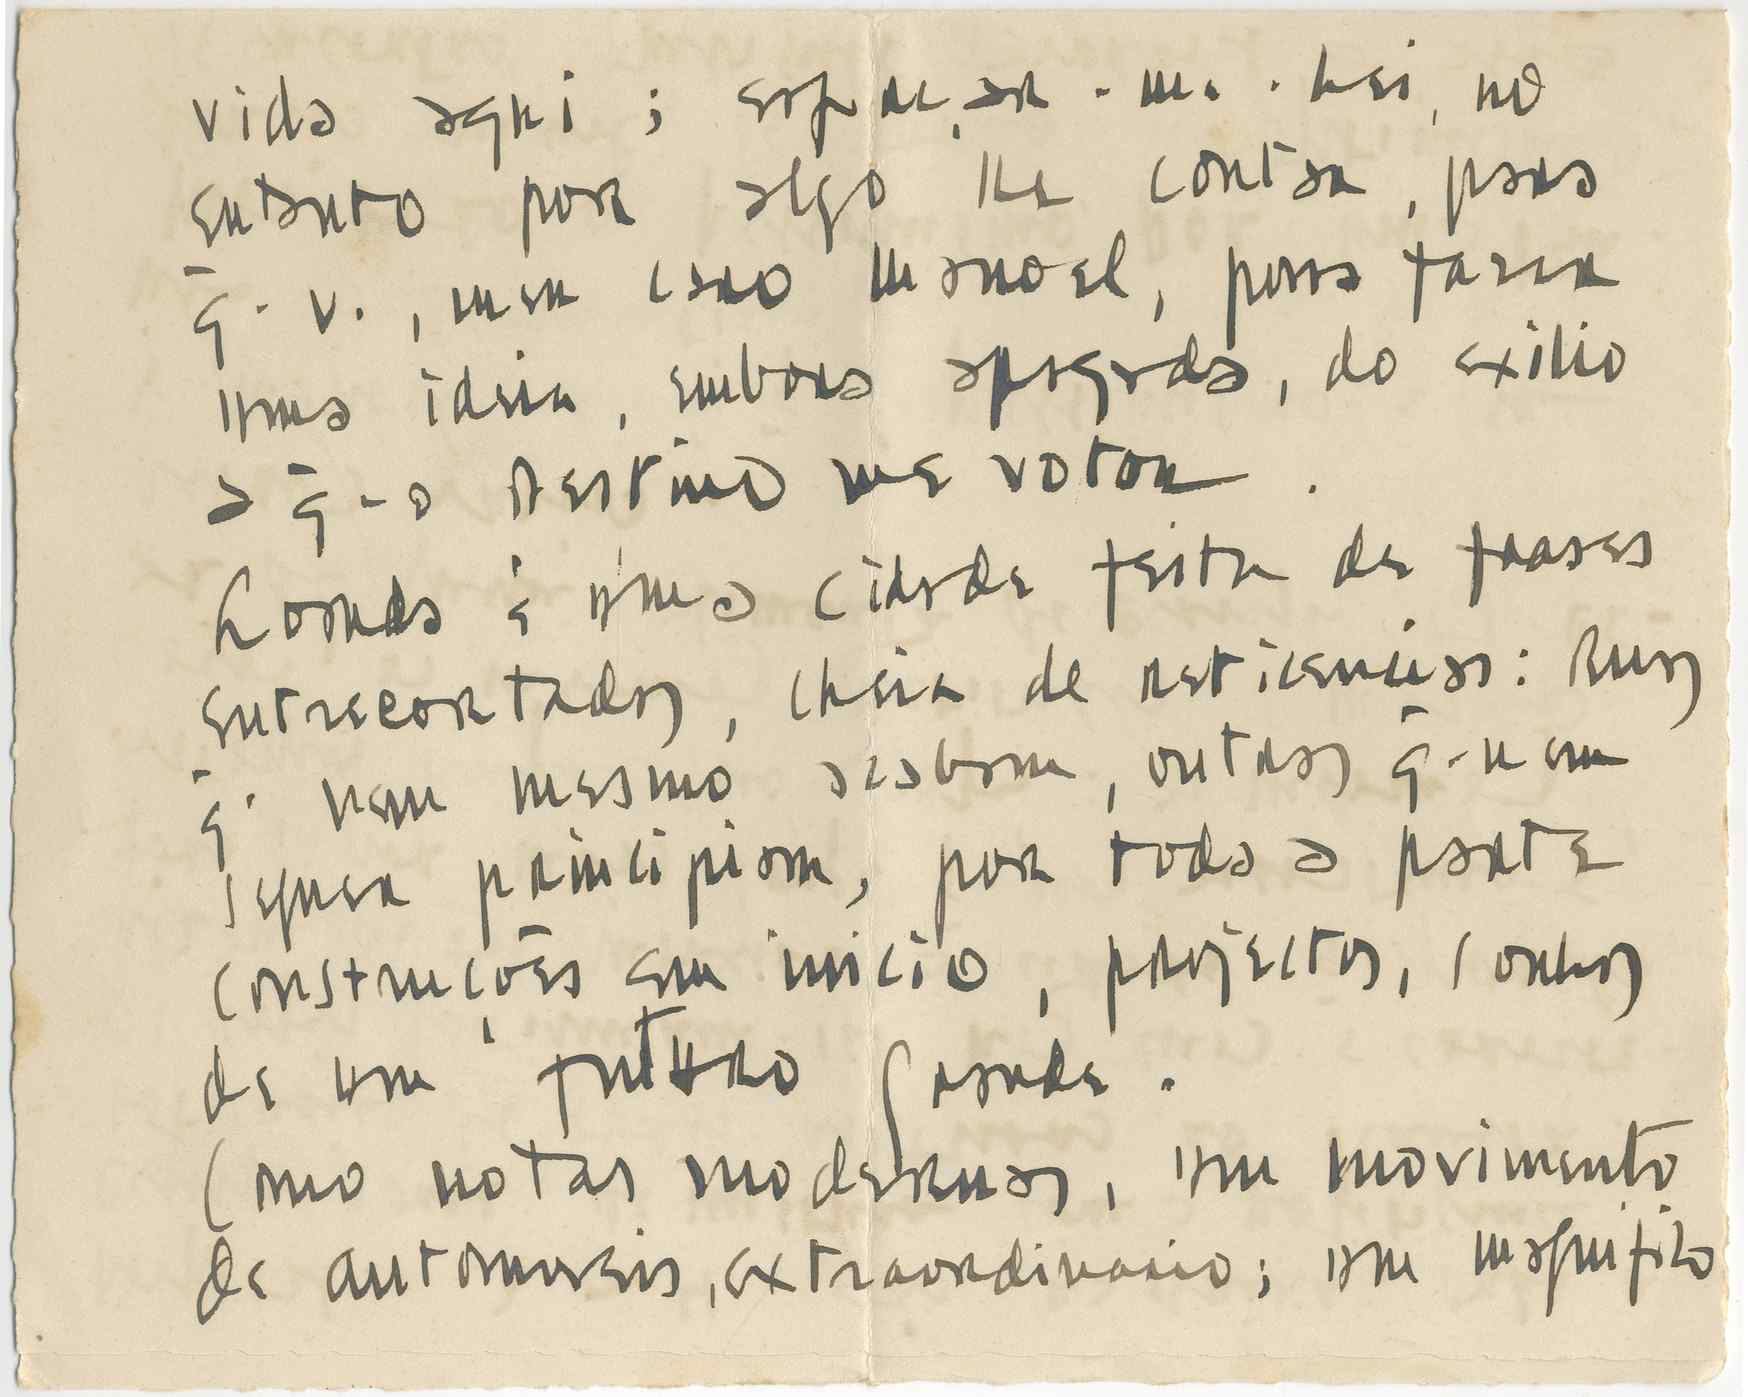 vida aqui; esforçar-me-hei, no
entanto por algo lhe contar, para
q̄. v., meu caro Manoel, possa fazer
uma ideia, embora apagada, do exilio
a q̄-o Destino me votou.
Loanda é uma cidade feita de frases
entrecortadas, cheia de reticencias: Ruas
q̄. nem mesmo acabam, outras q̄-nem
sequer principiam, por toda a parte
construções em inicio, projectos, sonhos
de um futuro Grande.
Como notas modernas, um movimento
de automoveis, extraordinario; um magnifico